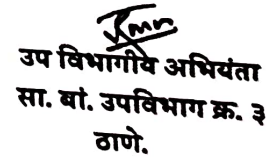 उप विभागीय अभियंता
सा. बां. उपविभाग क्र. ३
ठाणे.